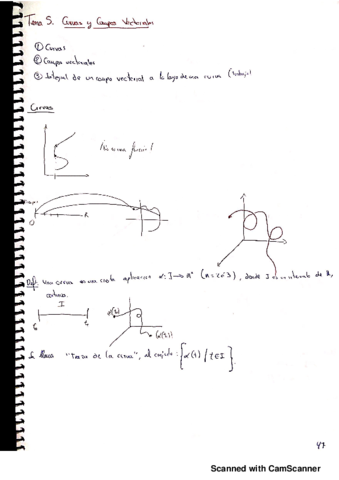 Tema 5. Curvas y Campos Vectoriales
① Curvas
② Campos vectoriales
③ Integral de un campo vectorial a lo largo de una curva (trabajo)
Curvas
No es una función!
Tiempo
0
R
Def: Una curva es una aplicación α: I → ℝⁿ (n = 2 ó 3), donde I es un intervalo de ℝ,
continua.
I
α(t)
Se llama "Traza de la curva", al conjunto: {α(t) / t ∈ I}.
47
Scanned with CamScanner